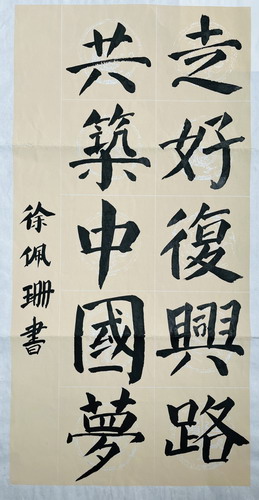 走好復興路
共築中國夢
徐佩珊書